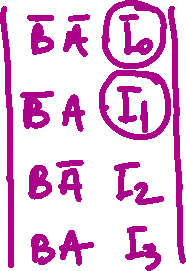 B̅ A̅ I₀
B̅ A I₁
B A̅ I₂
B A I₃